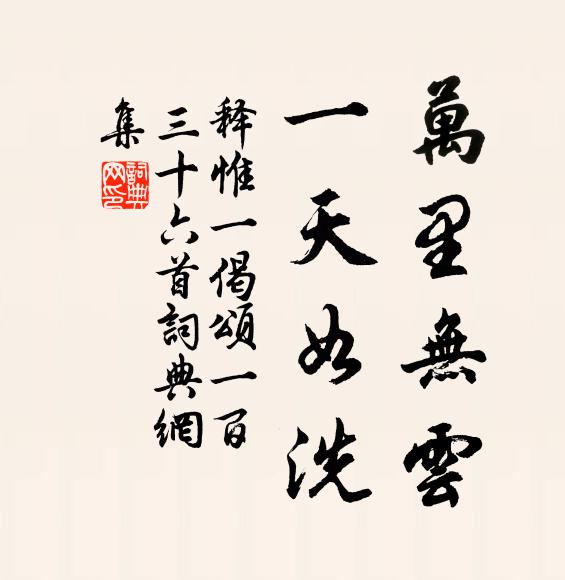 萬里無雲
一天如洗
释惟一偈頌一百
三十六首詞典網
集
詞典
网印